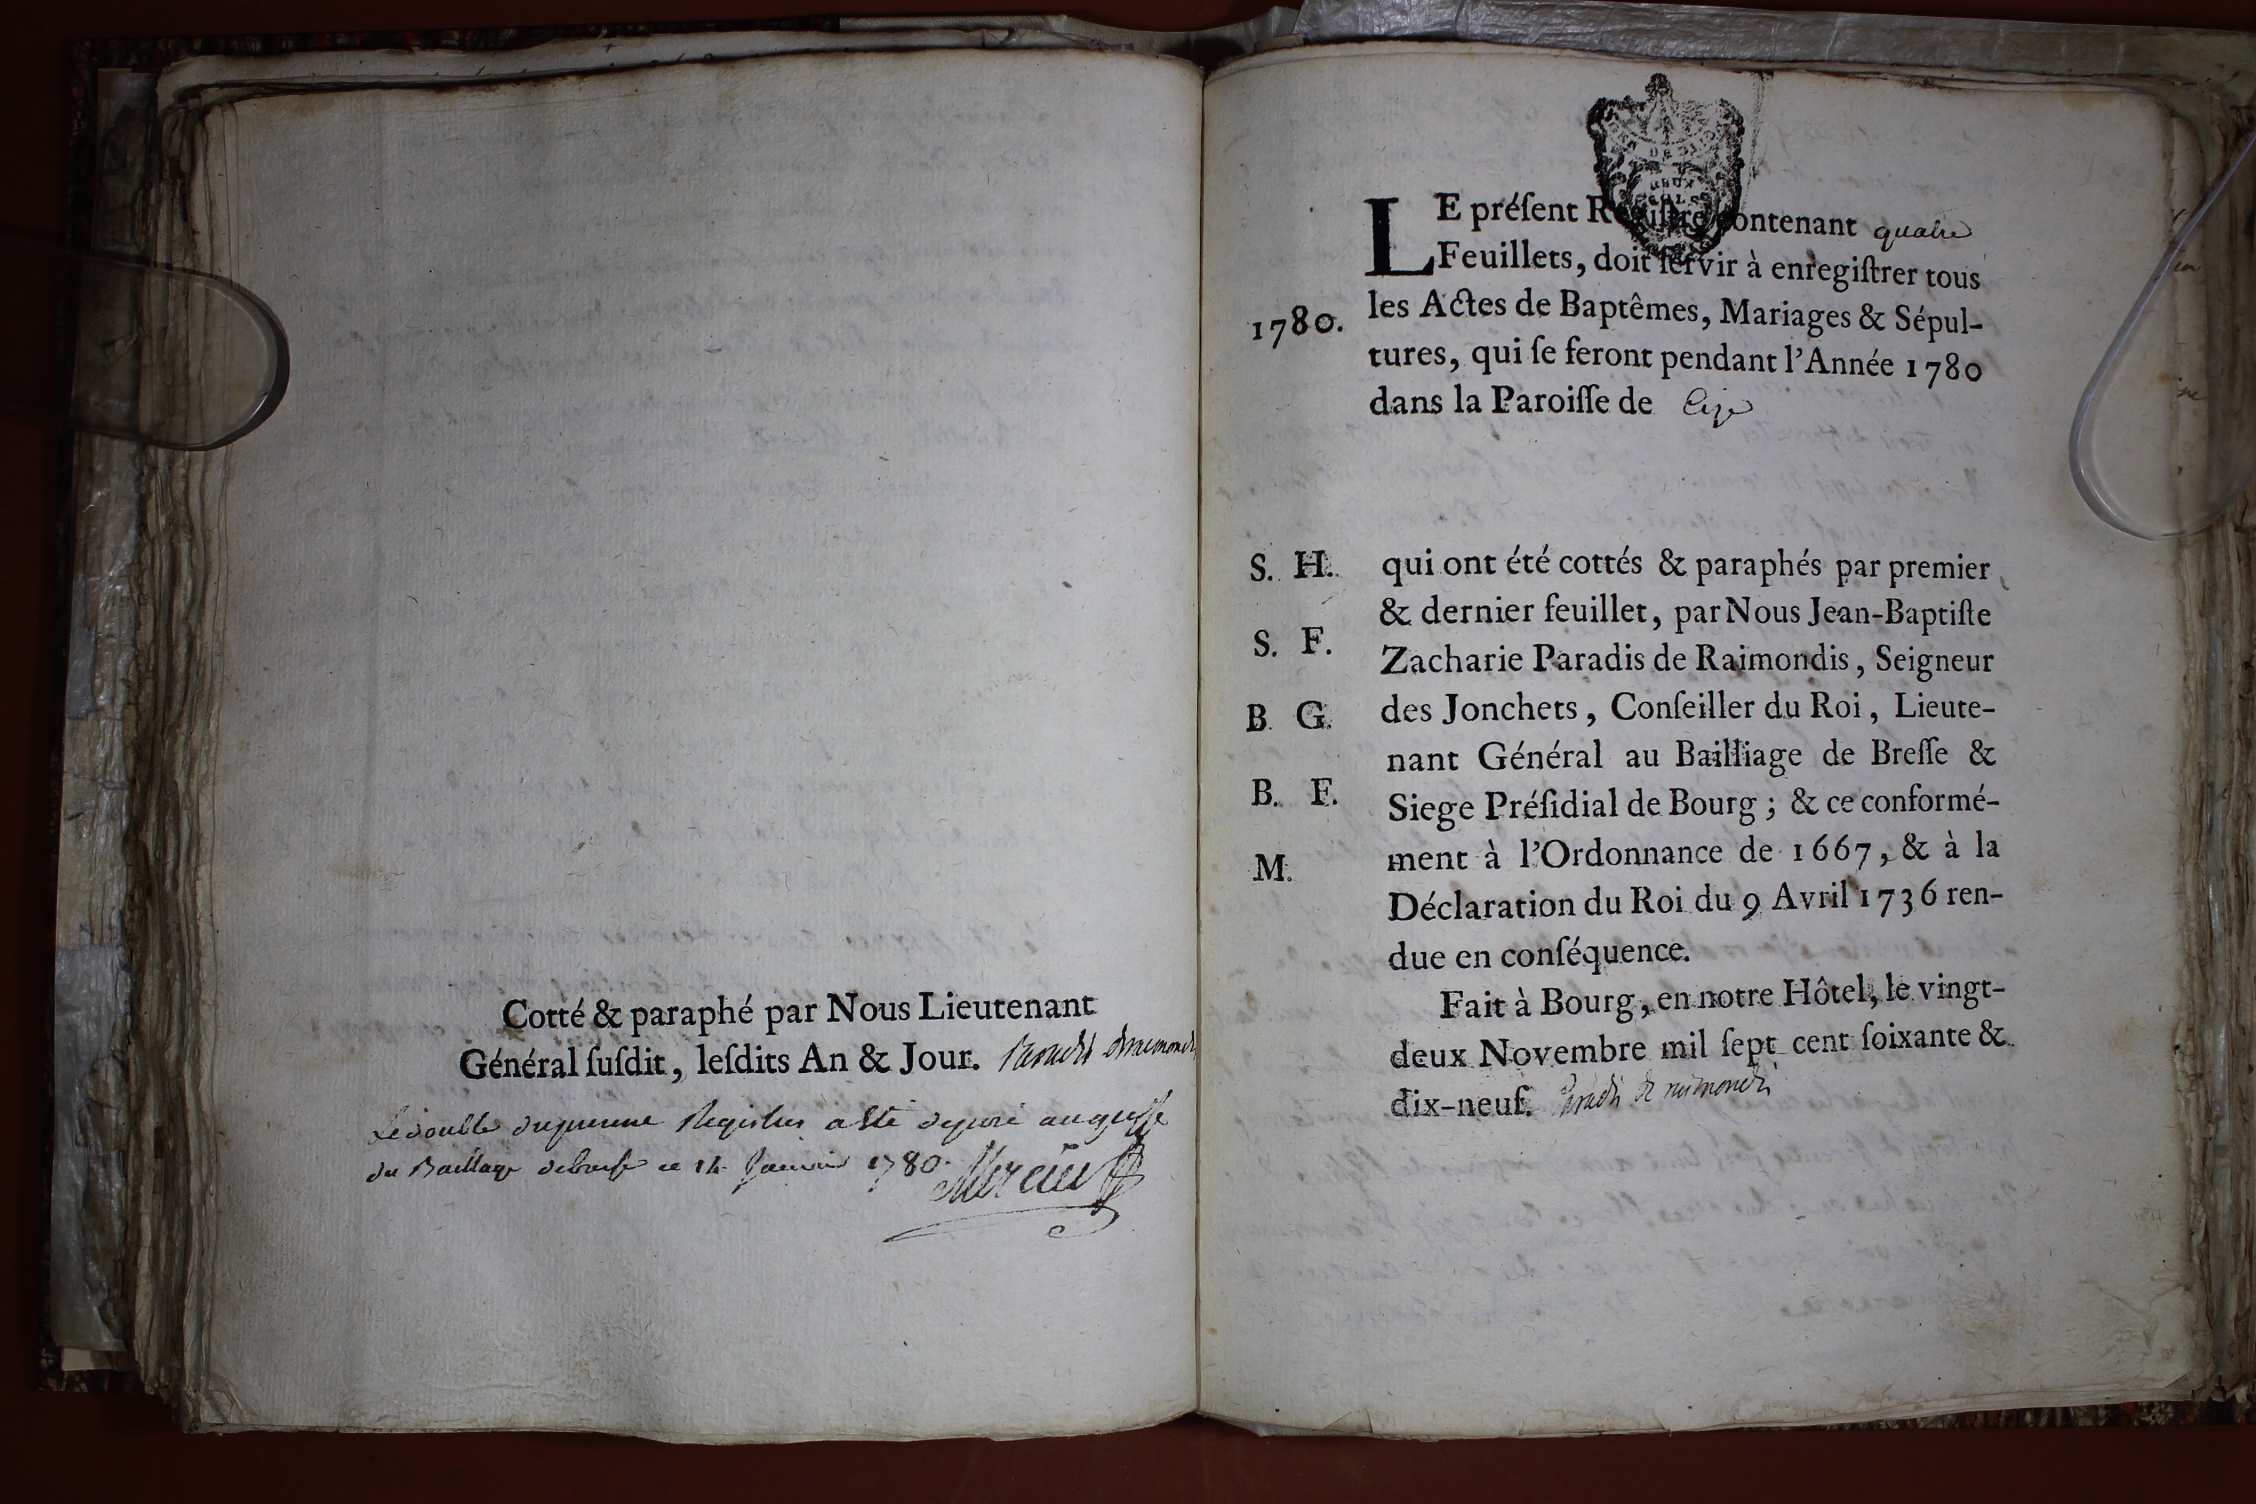 Cotté & paraphé par Nous Lieutenant
Général ſuſdit, leſdits An & Jour. Paradis de raimondis
Le double du present Registre a été deposé au greffe
du Bailliage de bresse ce 14 Janvier 1780.
DEUX
SOLS
LE préſent Regiſtre contenant quatre
Feuillets, doit ſervir à enregiſtrer tous
1780. les Actes de Baptêmes, Mariages & Sépul-
tures, qui ſe feront pendant l'Année 1780
dans la Paroiſſe de Cize
S. H. qui ont été cottés & paraphés par premier
& dernier feuillet, par Nous Jean-Baptiſte
S. F. Zacharie Paradis de Raimondis, Seigneur
B. G. des Jonchets, Conſeiller du Roi, Lieute-
nant Général au Bailliage de Breſſe &
B. F. Siege Préſidial de Bourg; & ce conformé-
M. ment à l'Ordonnance de 1667, & à la
Déclaration du Roi du 9 Avril 1736 ren-
due en conſéquence.
Fait à Bourg, en notre Hôtel, le vingt-
deux Novembre mil ſept cent ſoixante &
dix-neuf. Paradis de raimondis